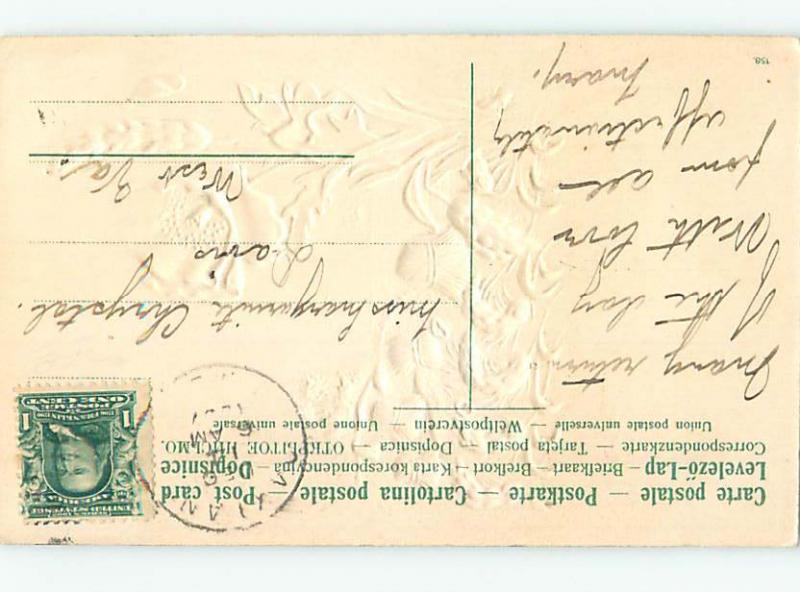 Carte postale — Postkarte — Cartolina postale — Post card
Levelező-Lap — Briefkaart — Brefkort — Karta korespondencyjna — Dopisnice
Correspondenzkarte — Tarjeta postal — Dopisnica — ОТКРЫТОЕ ПИСЬМО.
Union postale universelle — Weltpostverein — Unione postale universale
Many returns
of the day
With love
from all
affectionately
Mary.
Miss Margarite Chrystal.
Davis
West Va.
AM
1 ONE CENT 1
158.